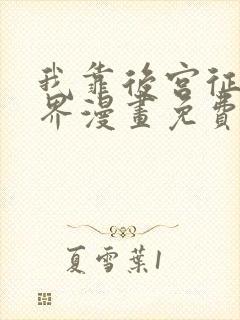 我靠後宮征
界漫畫免費
夏雪葉1